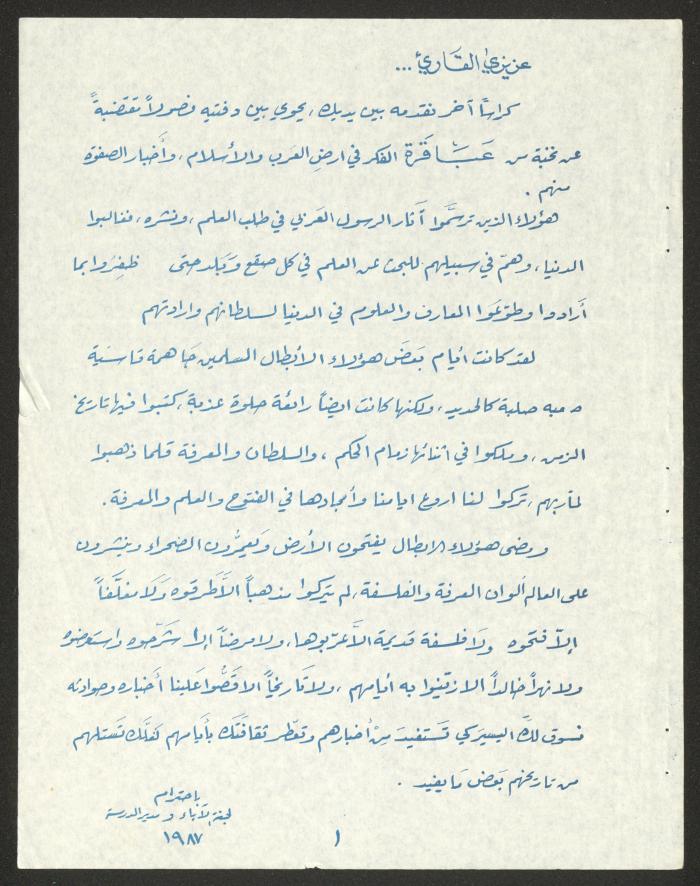 عزيزي القَارئ ...
كراسًا آخر نقدمه بين يديك، يحوي بين دفتيه فصولاً مقتضبةً
عن نخبة من عَبَاقرَة الفكر في ارضِ العرَب والأسلام، وأخبار الصفوة
منهم .
هؤلاء الذين ترسَّموا آثار الرسول العَربي في طلب العلم، ونشره، فغالبوا
الدنيا، وهمّ في سبيلهم للبحث عن العلم في كل صقع وَبَلد حتى ظفِروا بما
أَرادوا وطوّعَوا المعارف والعلوم في الدنيا لسلطانهم وارادتهم
لقد كانت أيام بَعضَ هؤلاء الأبطال المسلمين جَاهمة قاسَية
صعبه صلبة كالحديد، ولكنها كانت ايضاً رائعة حلوة عذبة، كتبوا فيها تاريخ
الزمن، وملكوا في اثنائها زمام الحكم، والسلطان والمعرفة قلما ذهبوا
لمآربهم، تركوا لنا اروع ايامنا وأمجادها في الفتوح والعلم والمعرفة.
ومضى هؤلاء الابطال يفتحون الأرض وَيعمِّرون الصَحراء وينشرون
على العالم ألوان المعرفة والفلسفة، لم يتركوا مذهباً الاَّ طرقوه وَلاَ مغلَّقاً
إلاّ فتحوه ولاَ فلسفة قديمة الاَّ عرّبوها، ولا مرضاً إلا شَرّحوه واستَعوضوه
ولا نهراً خالداً الا زيّنوا به أيامهم، ولا تَاريخاً الا قَصُّوا عَلينا أخباره وحوادثه
فسوق لكَ اليسيرَ كي تَستفيدَ مِنْ أخبارهم وتعَطّر ثقافتَكَ بأيَامهم لَعلَّك تَستلهم
من تاريخهم بَعض مَا يفيد .
باحترام
لجنة الآباء ومدير المدرسة
١٩٨٧
١